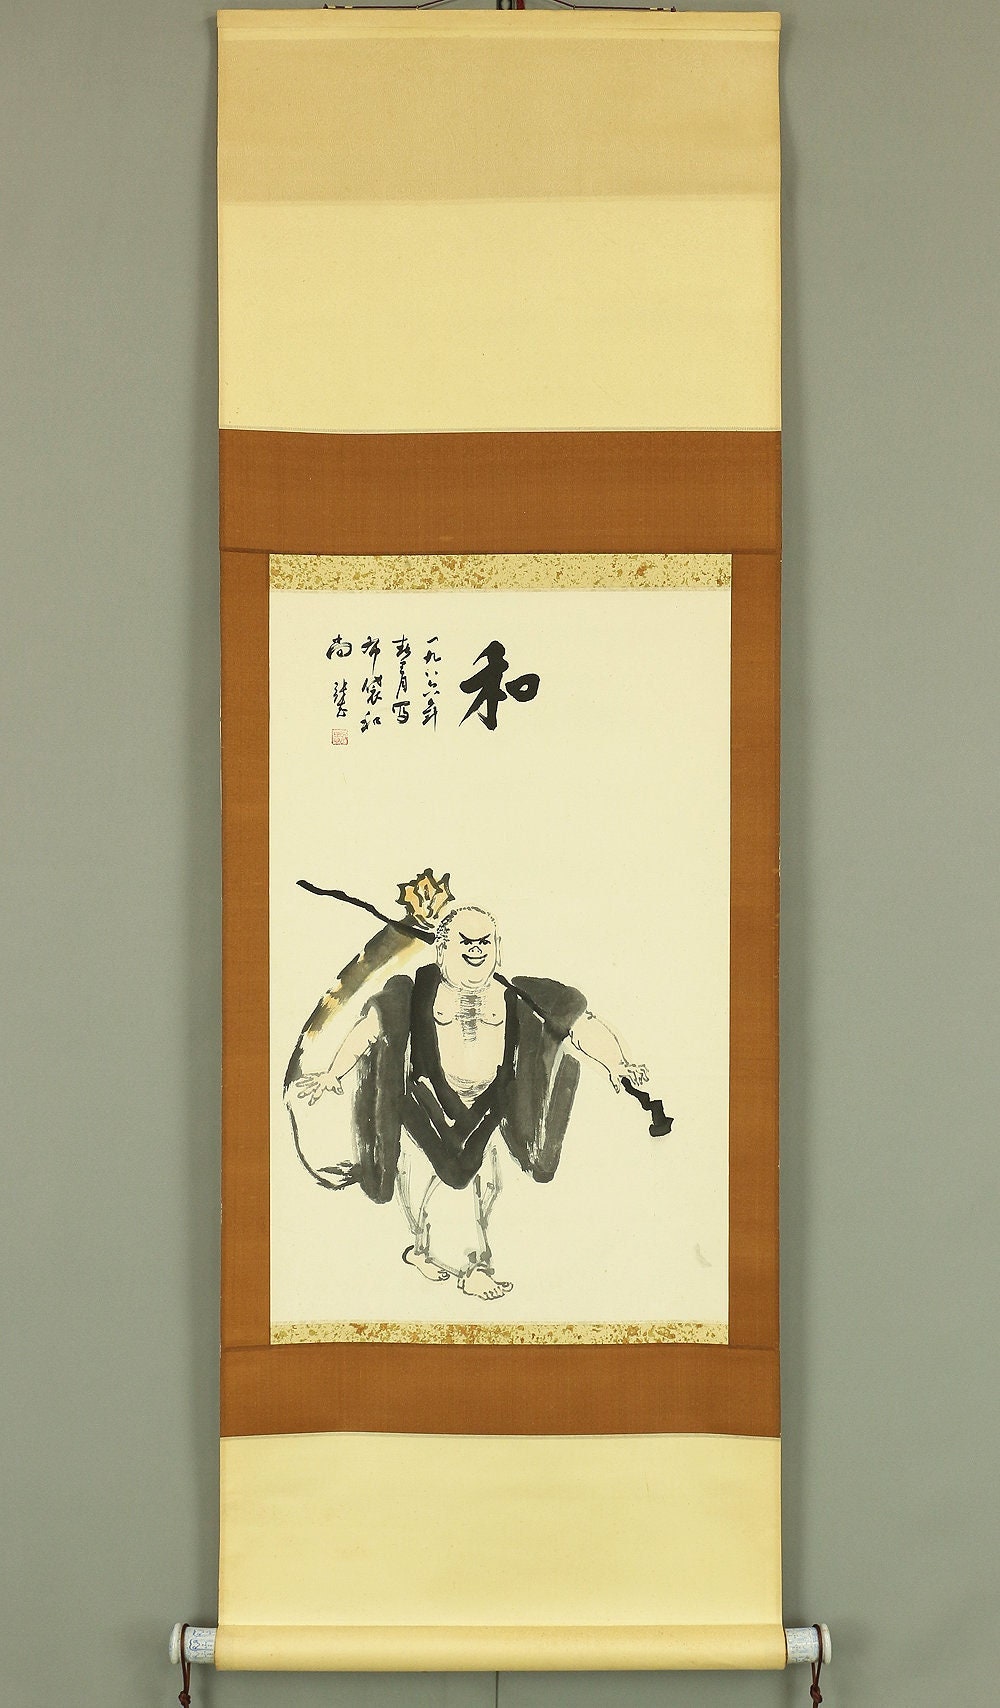 和
一九八六年
春月写
布袋和
尚